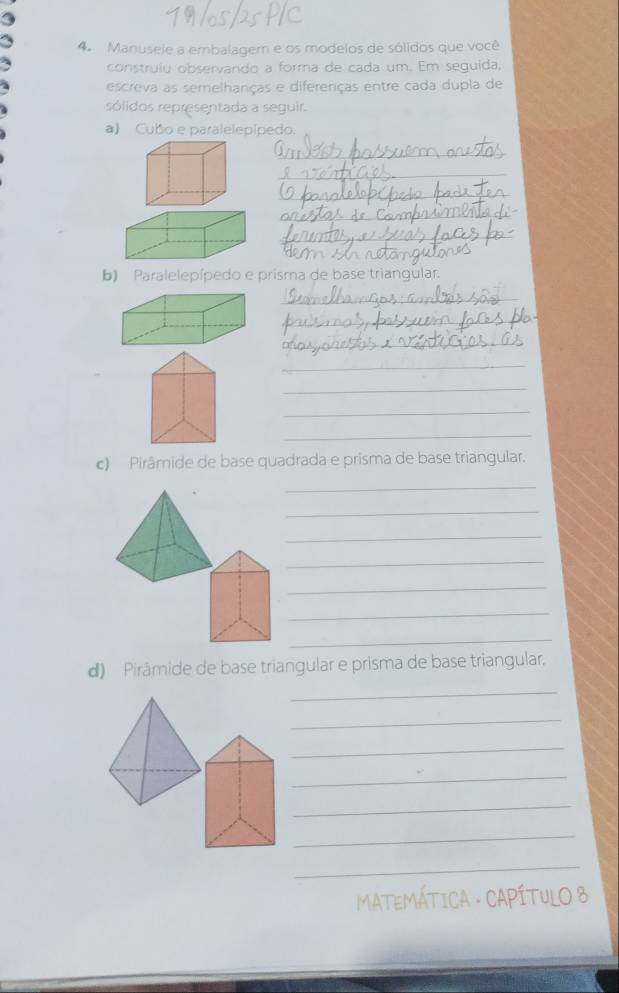 19/05/25 P/C
4. Manuseie a embalagem e os modelos de sólidos que você
construiu observando a forma de cada um. Em seguida,
escreva as semelhanças e diferenças entre cada dupla de
sólidos representada a seguir.
a) Cubo e paralelepípedo.
Ambos possuem arestas
e vértices.
O paralelepípedo pode ter
arestas de comprimento di-
ferentes, e suas faces po-
dem ser retangulares
b) Paralelepípedo e prisma de base triangular.
Semelhanças: ambos são
prismas, possuem faces pla-
nas, arestas e vértices. As
c) Pirâmide de base quadrada e prisma de base triangular.
d) Pirâmide de base triangular e prisma de base triangular.
MATEMÁTICA • CAPÍTULO 8